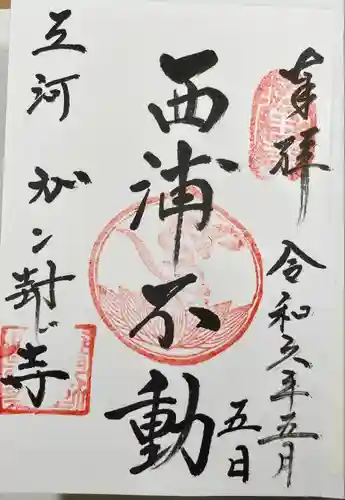 奉拝
令和六年五月
五日
西浦不動
三河 がン封じ寺